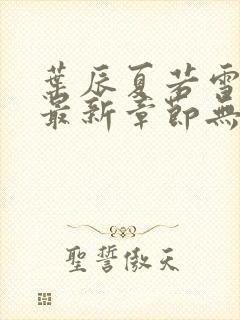 葉辰夏若雪
最新章節無
聖誓傲天